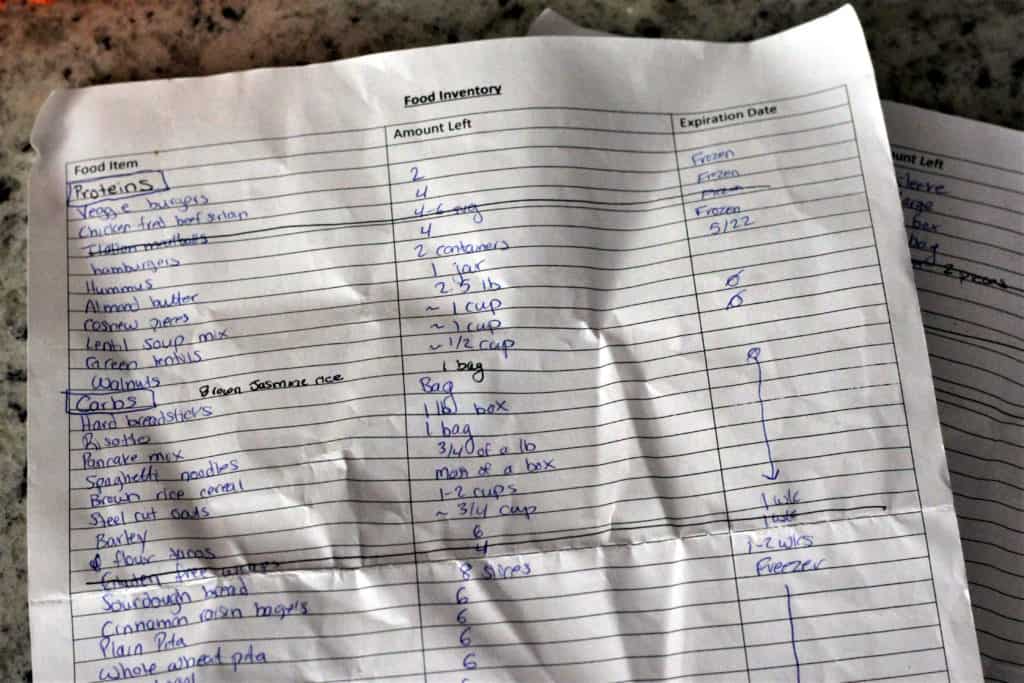 Food Inventory
Food Item Amount Left Expiration Date
Proteins
Veggie burgers 2 Frozen
Chicken fried beef sirloin 4 Frozen
Italian meatballs 4-6 Frozen
hamburgers 4 Frozen
Hummus 2 containers 5/22
Almond butter 1 jar
cashew pieces 2.5 lb
Lentil soup mix ~ 1 cup
Green lentils ~ 1 cup
Walnuts ~ 1/2 cup
Carbs Brown Jasmine rice 1 bag
Hard breadsticks Bag
Risotto 1 lb box
Pancake mix 1 bag
Spaghetti noodles 3/4 of a lb
Brown rice cereal most of a box
Steel cut oats 1-2 cups
Barley ~ 3/4 cup
flour tacos 6 1 wk
Gluten free 4 1 wk
Sourdough bread 8 slices 1-2 wks
Cinnamon raisin bagels 6 Freezer
Plain Pita 6
Whole wheat pita 6
6
unt Left
sleeve
box
bag
2 pieces